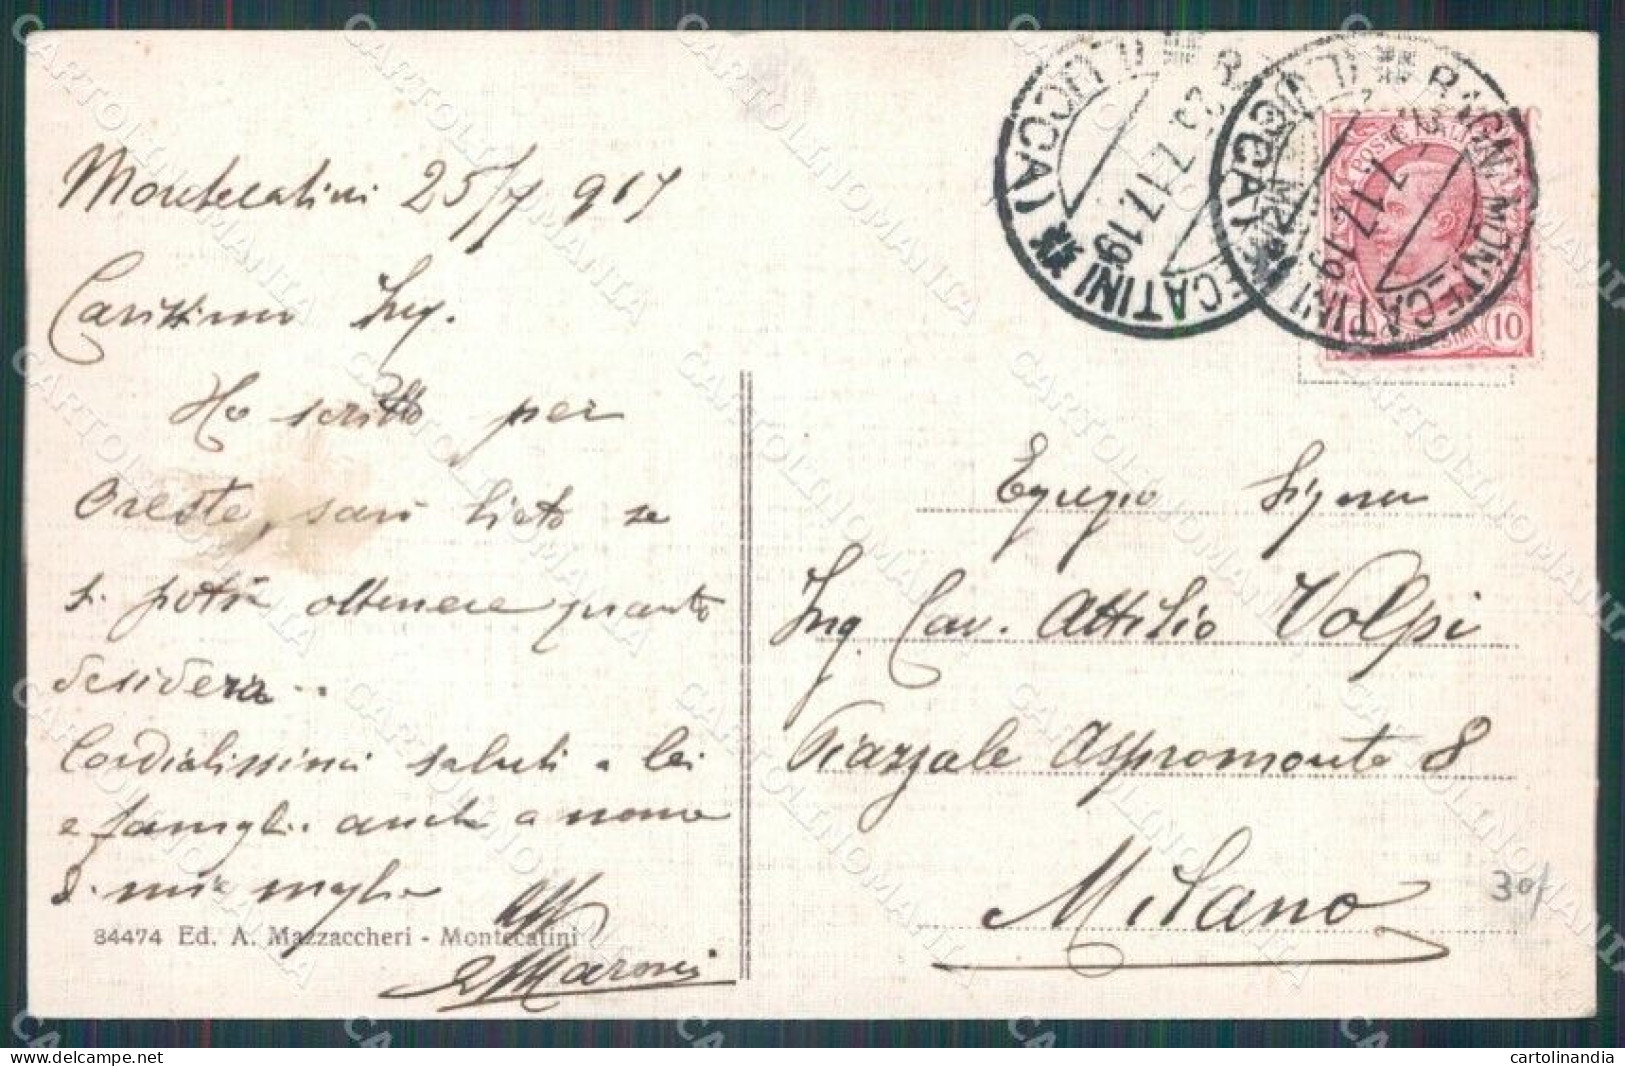 Montecatini 25/7 917
Carissimo Ing.
Ho scritto per
Oreste, sarò lieto se
si potrà ottenere quanto
desidera..
Cordialissimi saluti a lei
e famiglia anche a nome
di mia moglie
Maroni
84474 Ed. A. Mazzaccheri - Montecatini
BAGNI MONTECATINI (LUCCA)
7.17.19
BAGNI MONTECATINI (LUCCA)
7.17.19
POSTE ITALIANE
10
Egregio Signor
Ing. Cav. Attilio Volpi
Piazzale Aspromonte 8
Milano
30/
CARTOLINOMANIA
cartolinandia